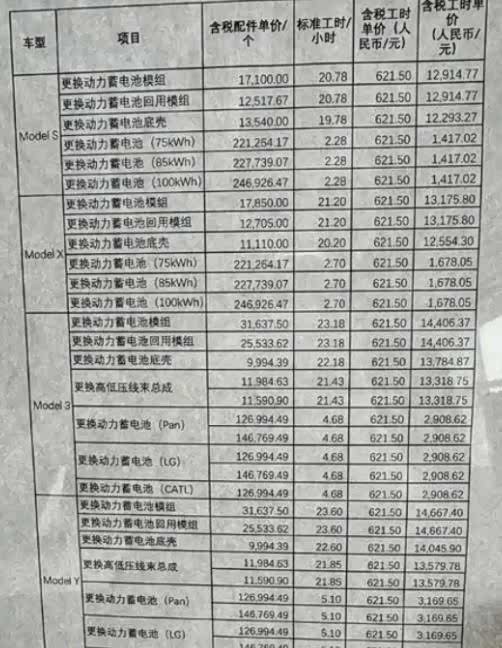 车型 项目 含税配件单价/个 标准工时/小时 含税工时单价（人民币/元） 含税工时单价（人民币/元）
Model S
更换动力蓄电池模组 17,100.00 20.78 621.50 12,914.77
更换动力蓄电池回用模组 12,517.67 20.78 621.50 12,914.77
更换动力蓄电池底壳 13,540.00 19.78 621.50 12,293.27
更换动力蓄电池（75kWh） 221,264.17 2.28 621.50 1,417.02
更换动力蓄电池（85kWh） 227,739.07 2.28 621.50 1,417.02
更换动力蓄电池（100kWh） 246,926.47 2.28 621.50 1,417.02
Model X
更换动力蓄电池模组 17,850.00 21.20 621.50 13,175.80
更换动力蓄电池回用模组 12,705.00 21.20 621.50 13,175.80
更换动力蓄电池底壳 11,110.00 20.20 621.50 12,554.30
更换动力蓄电池（75kWh） 221,264.17 2.70 621.50 1,678.05
更换动力蓄电池（85kWh） 227,739.07 2.70 621.50 1,678.05
更换动力蓄电池（100kWh） 246,926.47 2.70 621.50 1,678.05
Model 3
更换动力蓄电池模组 31,637.50 23.18 621.50 14,406.37
更换动力蓄电池回用模组 25,533.62 23.18 621.50 14,406.37
更换动力蓄电池底壳 9,994.39 22.18 621.50 13,784.87
更换高低压线束总成 11,984.63 21.43 621.50 13,318.75
11,590.90 21.43 621.50 13,318.75
更换动力蓄电池（Pan） 126,994.49 4.68 621.50 2,908.62
146,769.49 4.68 621.50 2,908.62
更换动力蓄电池（LG） 126,994.49 4.68 621.50 2,908.62
146,769.49 4.68 621.50 2,908.62
更换动力蓄电池（CATL） 126,994.49 4.68 621.50 2,908.62
Model Y
更换动力蓄电池模组 31,637.50 23.60 621.50 14,667.40
更换动力蓄电池回用模组 25,533.62 23.60 621.50 14,667.40
更换动力蓄电池底壳 9,994.39 22.60 621.50 14,045.90
更换高低压线束总成 11,984.63 21.85 621.50 13,579.78
11,590.90 21.85 621.50 13,579.78
更换动力蓄电池（Pan） 126,994.49 5.10 621.50 3,169.65
146,769.49 5.10 621.50 3,169.65
更换动力蓄电池（LG） 126,994.49 5.10 621.50 3,169.65